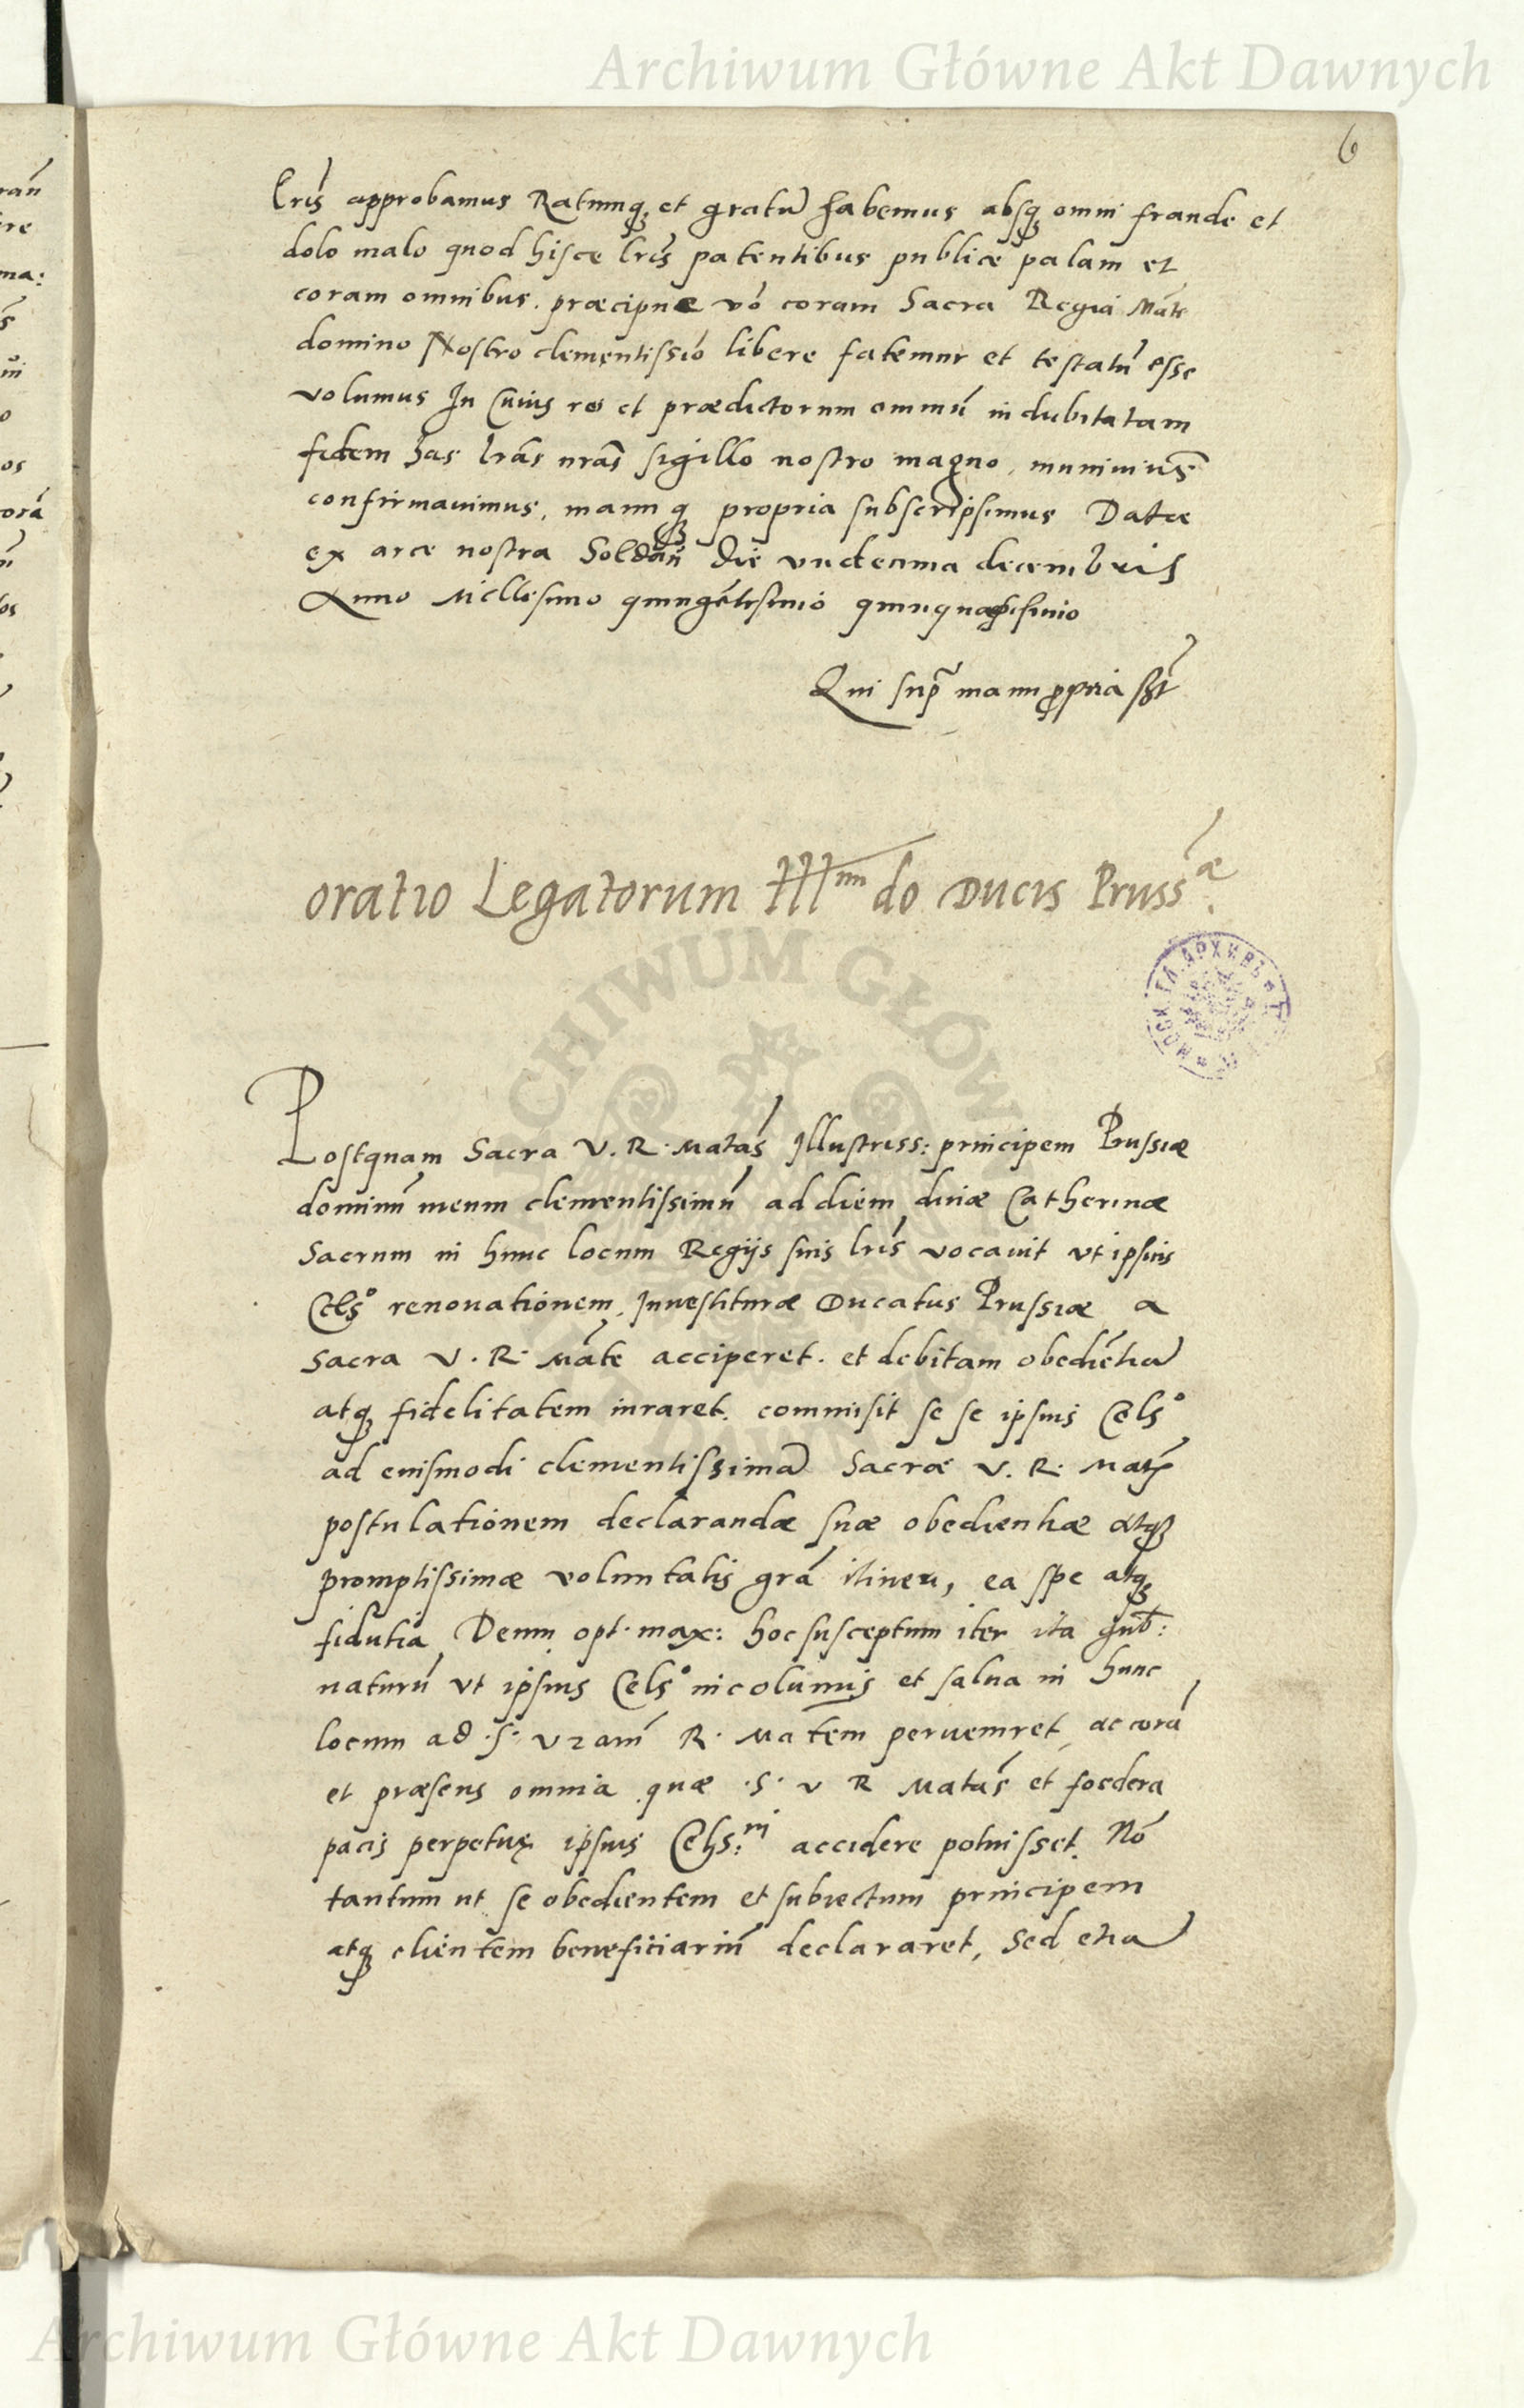 Archiwum Główne Akt Dawnych
6
Lris approbamus Ratumq; et gratū habemus absq; omni fraude et
dolo malo quod hisce lris patentibus publicæ palam et
coram omnibus. præcipuæ vō coram Sacra Regia Mate
domino Nostro clementissīō libere fatemur et testatū esse
volumus In Cuius rei et prædictorum omniū indubitatam
fidem has lrās nrās sigillo nostro magno, muniuimꝰ
confirmauimus, manuq; propria subscripsimus Datæ
ex arce nostra Soldau Die vndecima decembris
Anno Millesimo quingētisimo quinquagesimo
Qui supra manu propria sst
oratio Legatorum Illmi do Ducis Prussæ.
Postquam Sacra V. R. Matas Illustriss: principem Prussiæ
dominū meum clementissimū ad diem diuæ Catherinæ
Sacrum in hunc locum Regijs suis lris vocauit vt ipsius
Celso renouationem Inuestituræ Ducatus Prussiæ a
Sacra V. R. Mate acciperet. et debitam obediētiā
atq; fidelitatem iuraret. commisit se se ipsius Celso
ad eiusmodi clementissimā Sacræ V. R. Matis
postulationem declarandæ suæ obedientiæ atq;
promptissimæ voluntatis grā itineri, ea spe atq;
fidutia Deum opt. max: hoc susceptum iter ita gub:
naturū vt ipsius Celso incolumis et salua in hunc
locum ad .S. vram R. Matem perueniret, ac corā
et præsens omnia quæ .S. V R Matas et foedera
pacis perpetuę ipsius Cels:ni accidere potuisset. Nō
tantum ut se obedientem et subiectum principem
atq; clientem beneficiariū declararet, Sed etiā
Archiwum Główne Akt Dawnych